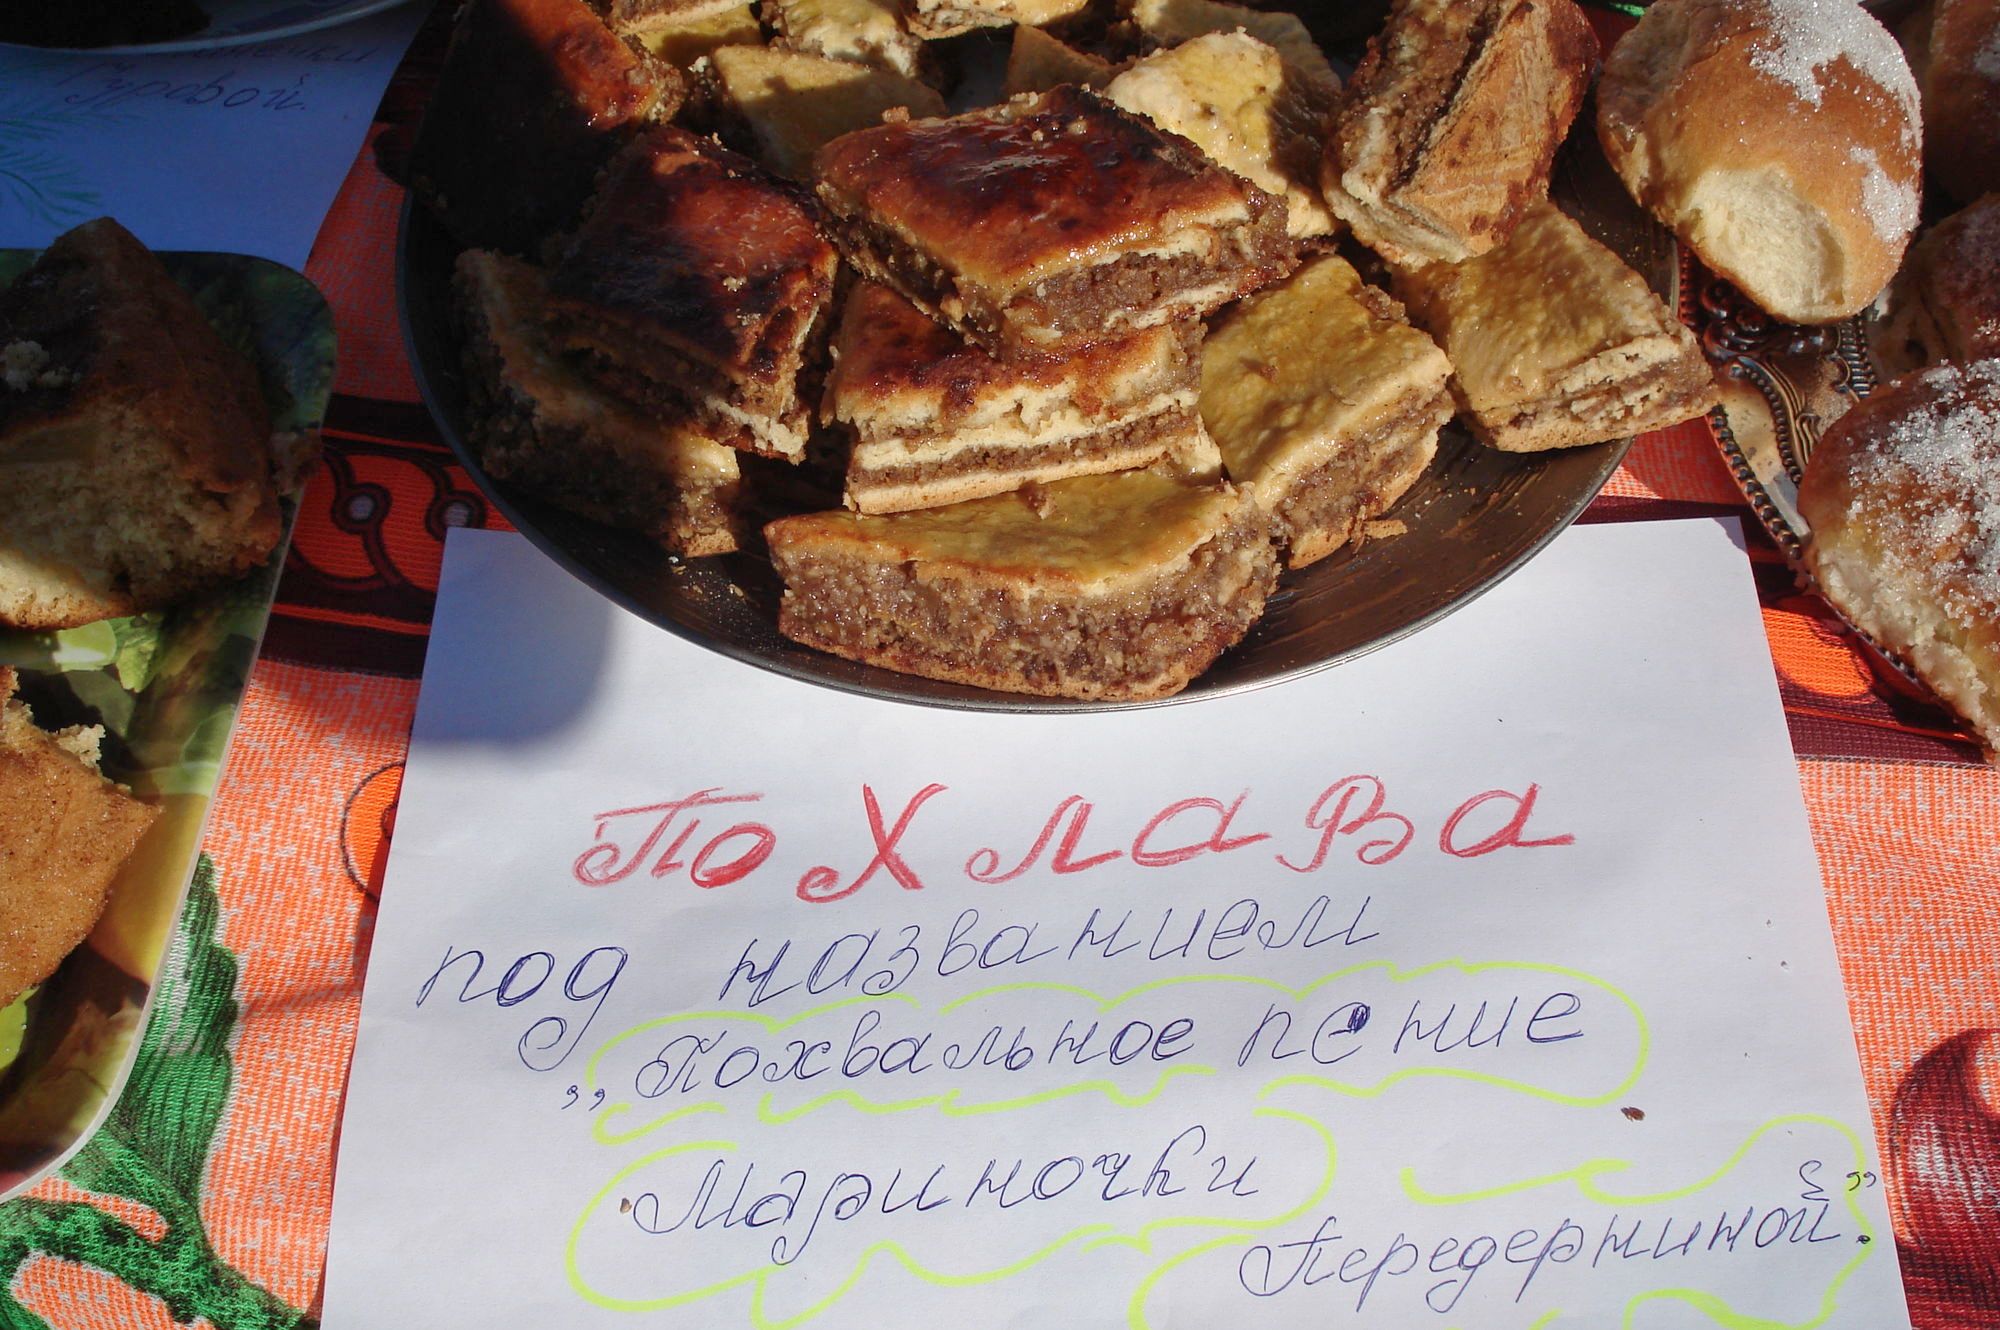 Гуровой.
Похлава
под названием
„Похвальное пение
Мариночки
Передерниной”.